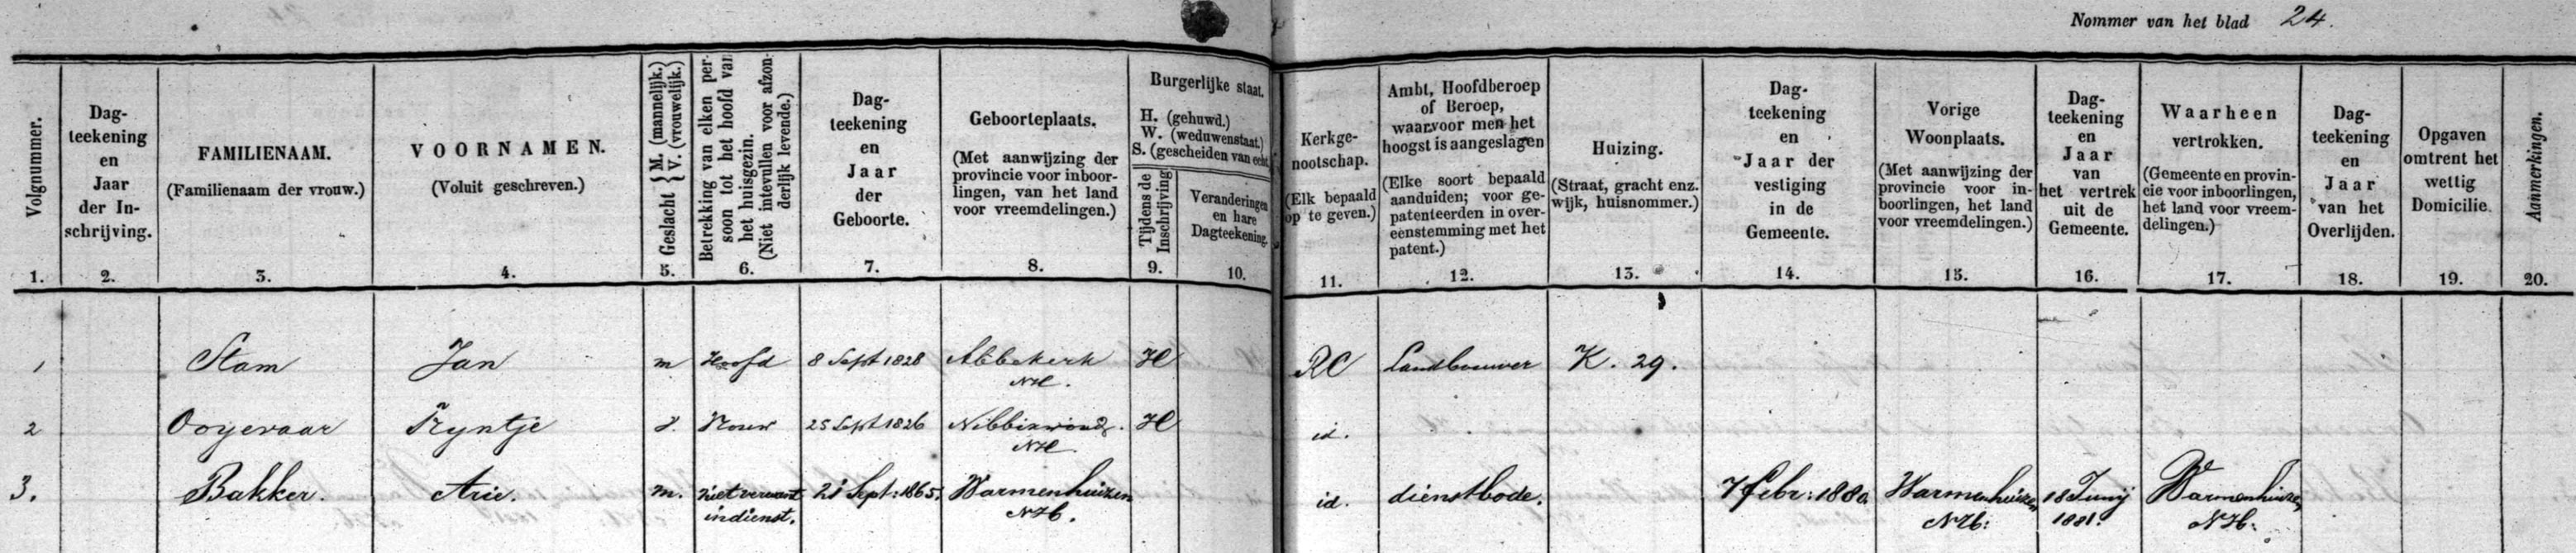 Nommer van het blad 24.
Volgnummer.
1.
Dag-
teekening
en
Jaar
der In-
schrijving.
2.
FAMILIENAAM.
(Familienaam der vrouw.)
3.
VOORNAMEN.
(Voluit geschreven.)
4.
Geslacht { M. (mannelijk.) V. (vrouwelijk.)
5.
Betrekking van elken per-
soon tot het hoofd van
het huisgezin.
(Niet intevullen voor afzon-
derlijk levende.)
6.
Dag-
teekening
en
Jaar
der
Geboorte.
7.
Geboorteplaats.
(Met aanwijzing der
provincie voor inboor-
lingen, van het land
voor vreemdelingen.)
8.
Burgerlijke staat.
H. (gehuwd.)
W. (weduwenstaat.)
S. (gescheiden van echt.
Tijdens de
Inschrijving
9.
Veranderingen
en hare
Dagteekening.
10.
Kerkge-
nootschap.
(Elk bepaald
op te geven.)
11.
Ambt, Hoofdberoep
of Beroep,
waarvoor men het
hoogst is aangeslagen
(Elke soort bepaald
aanduiden; voor ge-
patenteerden in over-
eenstemming met het
patent.)
12.
Huizing.
(Straat, gracht enz.
wijk, huisnommer.)
13.
Dag-
teekening
en
Jaar der
vestiging
in de
Gemeente.
14.
Vorige
Woonplaats.
(Met aanwijzing der
provincie voor in-
boorlingen, het land
voor vreemdelingen.)
15.
Dag-
teekening
en
Jaar
van
het vertrek
uit de
Gemeente.
16.
Waarheen
vertrokken.
(Gemeente en provin-
cie voor inboorlingen,
het land voor vreem-
delingen.)
17.
Dag-
teekening
en
Jaar
van het
Overlijden.
18.
Opgaven
omtrent het
wettig
Domicilie.
19.
Aanmerkingen.
20.
1 Stam Jan m Hoofd 8 Sept 1828 Abbekerk H RC Landbouwer K. 29.
NH.
2 Ooyevaar Tryntje v. Vrouw 25 Sept 1826 Nibbixwoud. H id.
NH
3. Bakker. Arie. m. niet verwant 21 Sept: 1865. Warmenhuizen id. dienstbode. 7 Febr: 1880. Warmenhuizen 18 Junij Warmenhuizen
indienst. NH. NH: 1881. NH.